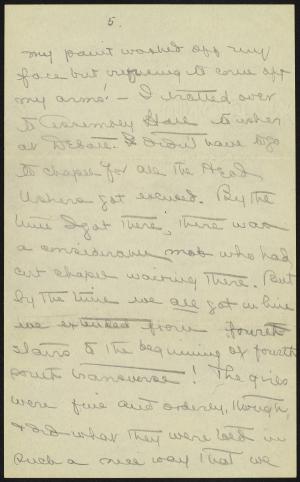 5.
my paint washed off my
face but refusing to come off
my arms! — I trotted over
to Assembly Hall to usher
at Debate. I didn't have to go
to chapel for all the Head
Ushers got excused. By the
time I got there, there was
a considerable mob who had
cut chapel waiting there. But
by the time we all got in line
we extended from fourth
stairs to the beginning of fourth
south transverse! The girls
were fine and orderly, though,
& did what they were told in
such a nice way that we